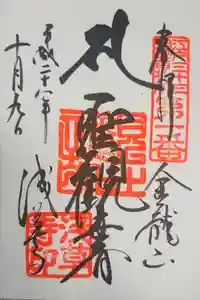 奉拝
金龍山
聖観世音
浅草寺
平成二十八年
十月九日
浅草寺印